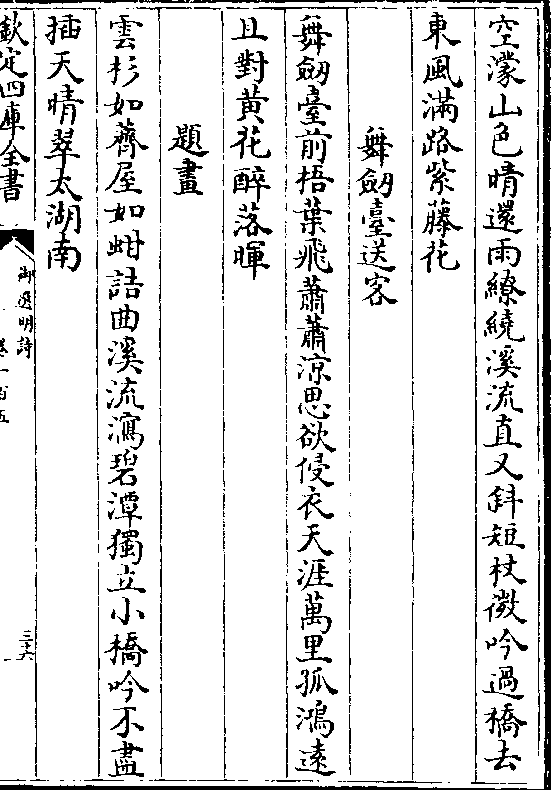 空濛山色晴還雨繚繞溪流直又斜短杖微吟過橋去
東風滿路紫藤花
舞劒臺送客
舞劒臺前梧葉飛蕭蕭凉思欲侵衣天涯萬里孤鴻遠
且對黄花醉落暉
題畫
雲杉如薺屋如蚶詰曲溪流瀉碧潭獨立小橋吟不盡
插天晴翠太湖南
欽定四庫全書
御選明詩
卷一百五
三十六